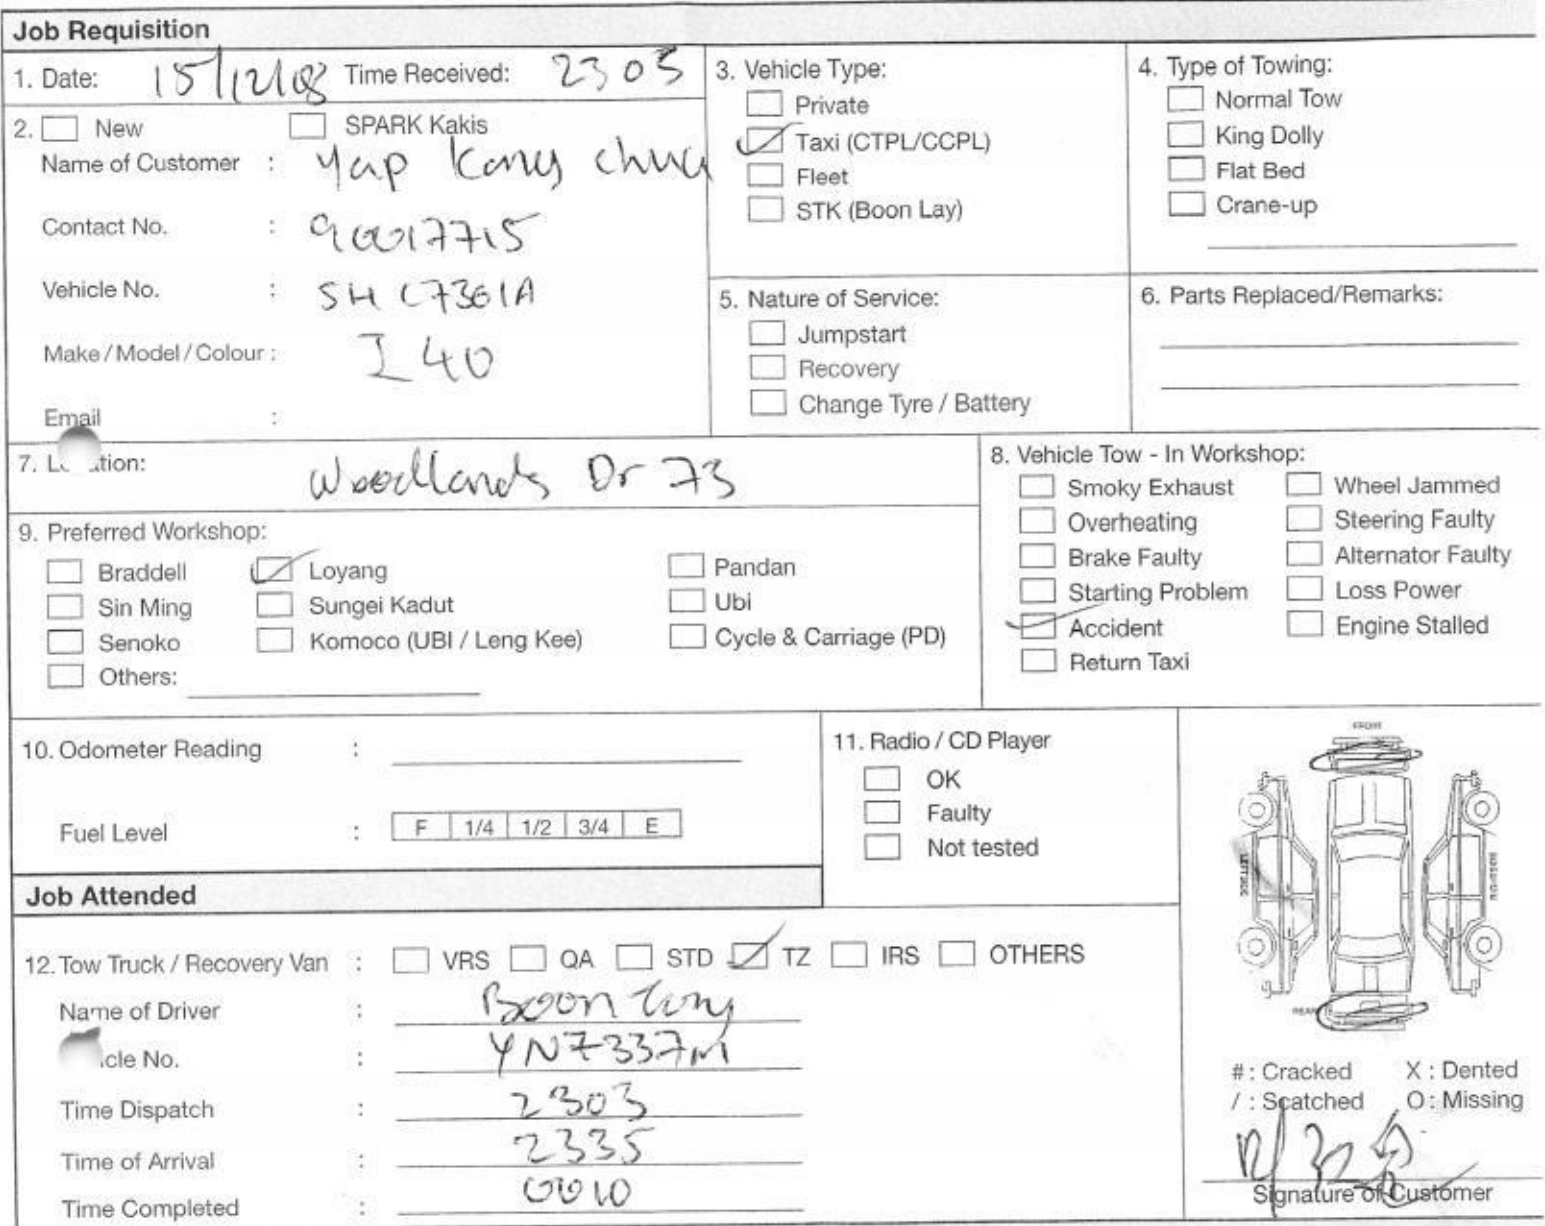 Job Requisition
1. Date: 15/12/18 Time Received: 2303
2. New SPARK Kakis
Name of Customer : Yap Kong
Contact No. : 90017715
Vehicle No. : SHC7361A
Make / Model / Colour : I 40
Email :
3. Vehicle Type:
Private
Taxi (CTPL/CCPL)
Fleet
STK (Boon Lay)
4. Type of Towing:
Normal Tow
King Dolly
Flat Bed
Crane-up
5. Nature of Service:
Jumpstart
Recovery
Change Tyre / Battery
6. Parts Replaced/Remarks:
7. Woodlands Dr 73
8. Vehicle Tow - In Workshop:
Smoky Exhaust Wheel Jammed
Overheating Steering Faulty
Brake Faulty Alternator Faulty
Starting Problem Loss Power
Accident Engine Stalled
Return Taxi
9. Preferred Workshop:
Braddell Loyang Pandan
Sin Ming Sungei Kadut Ubi
Senoko Komoco (UBI / Leng Kee) Cycle & Carriage (PD)
Others:
10. Odometer Reading :
Fuel Level : F 1/4 1/2 3/4 E
11. Radio / CD Player
OK
Faulty
Not tested
FRONT
LEFT SIDE
REAR
#: Cracked X : Dented
/ : Scatched O : Missing
Signature of Customer
Job Attended
12. Tow Truck / Recovery Van : VRS QA STD TZ IRS OTHERS
Name of Driver : Boon
cle No. : YN7337M
Time Dispatch : 2303
Time of Arrival : 2335
Time Completed : 0010